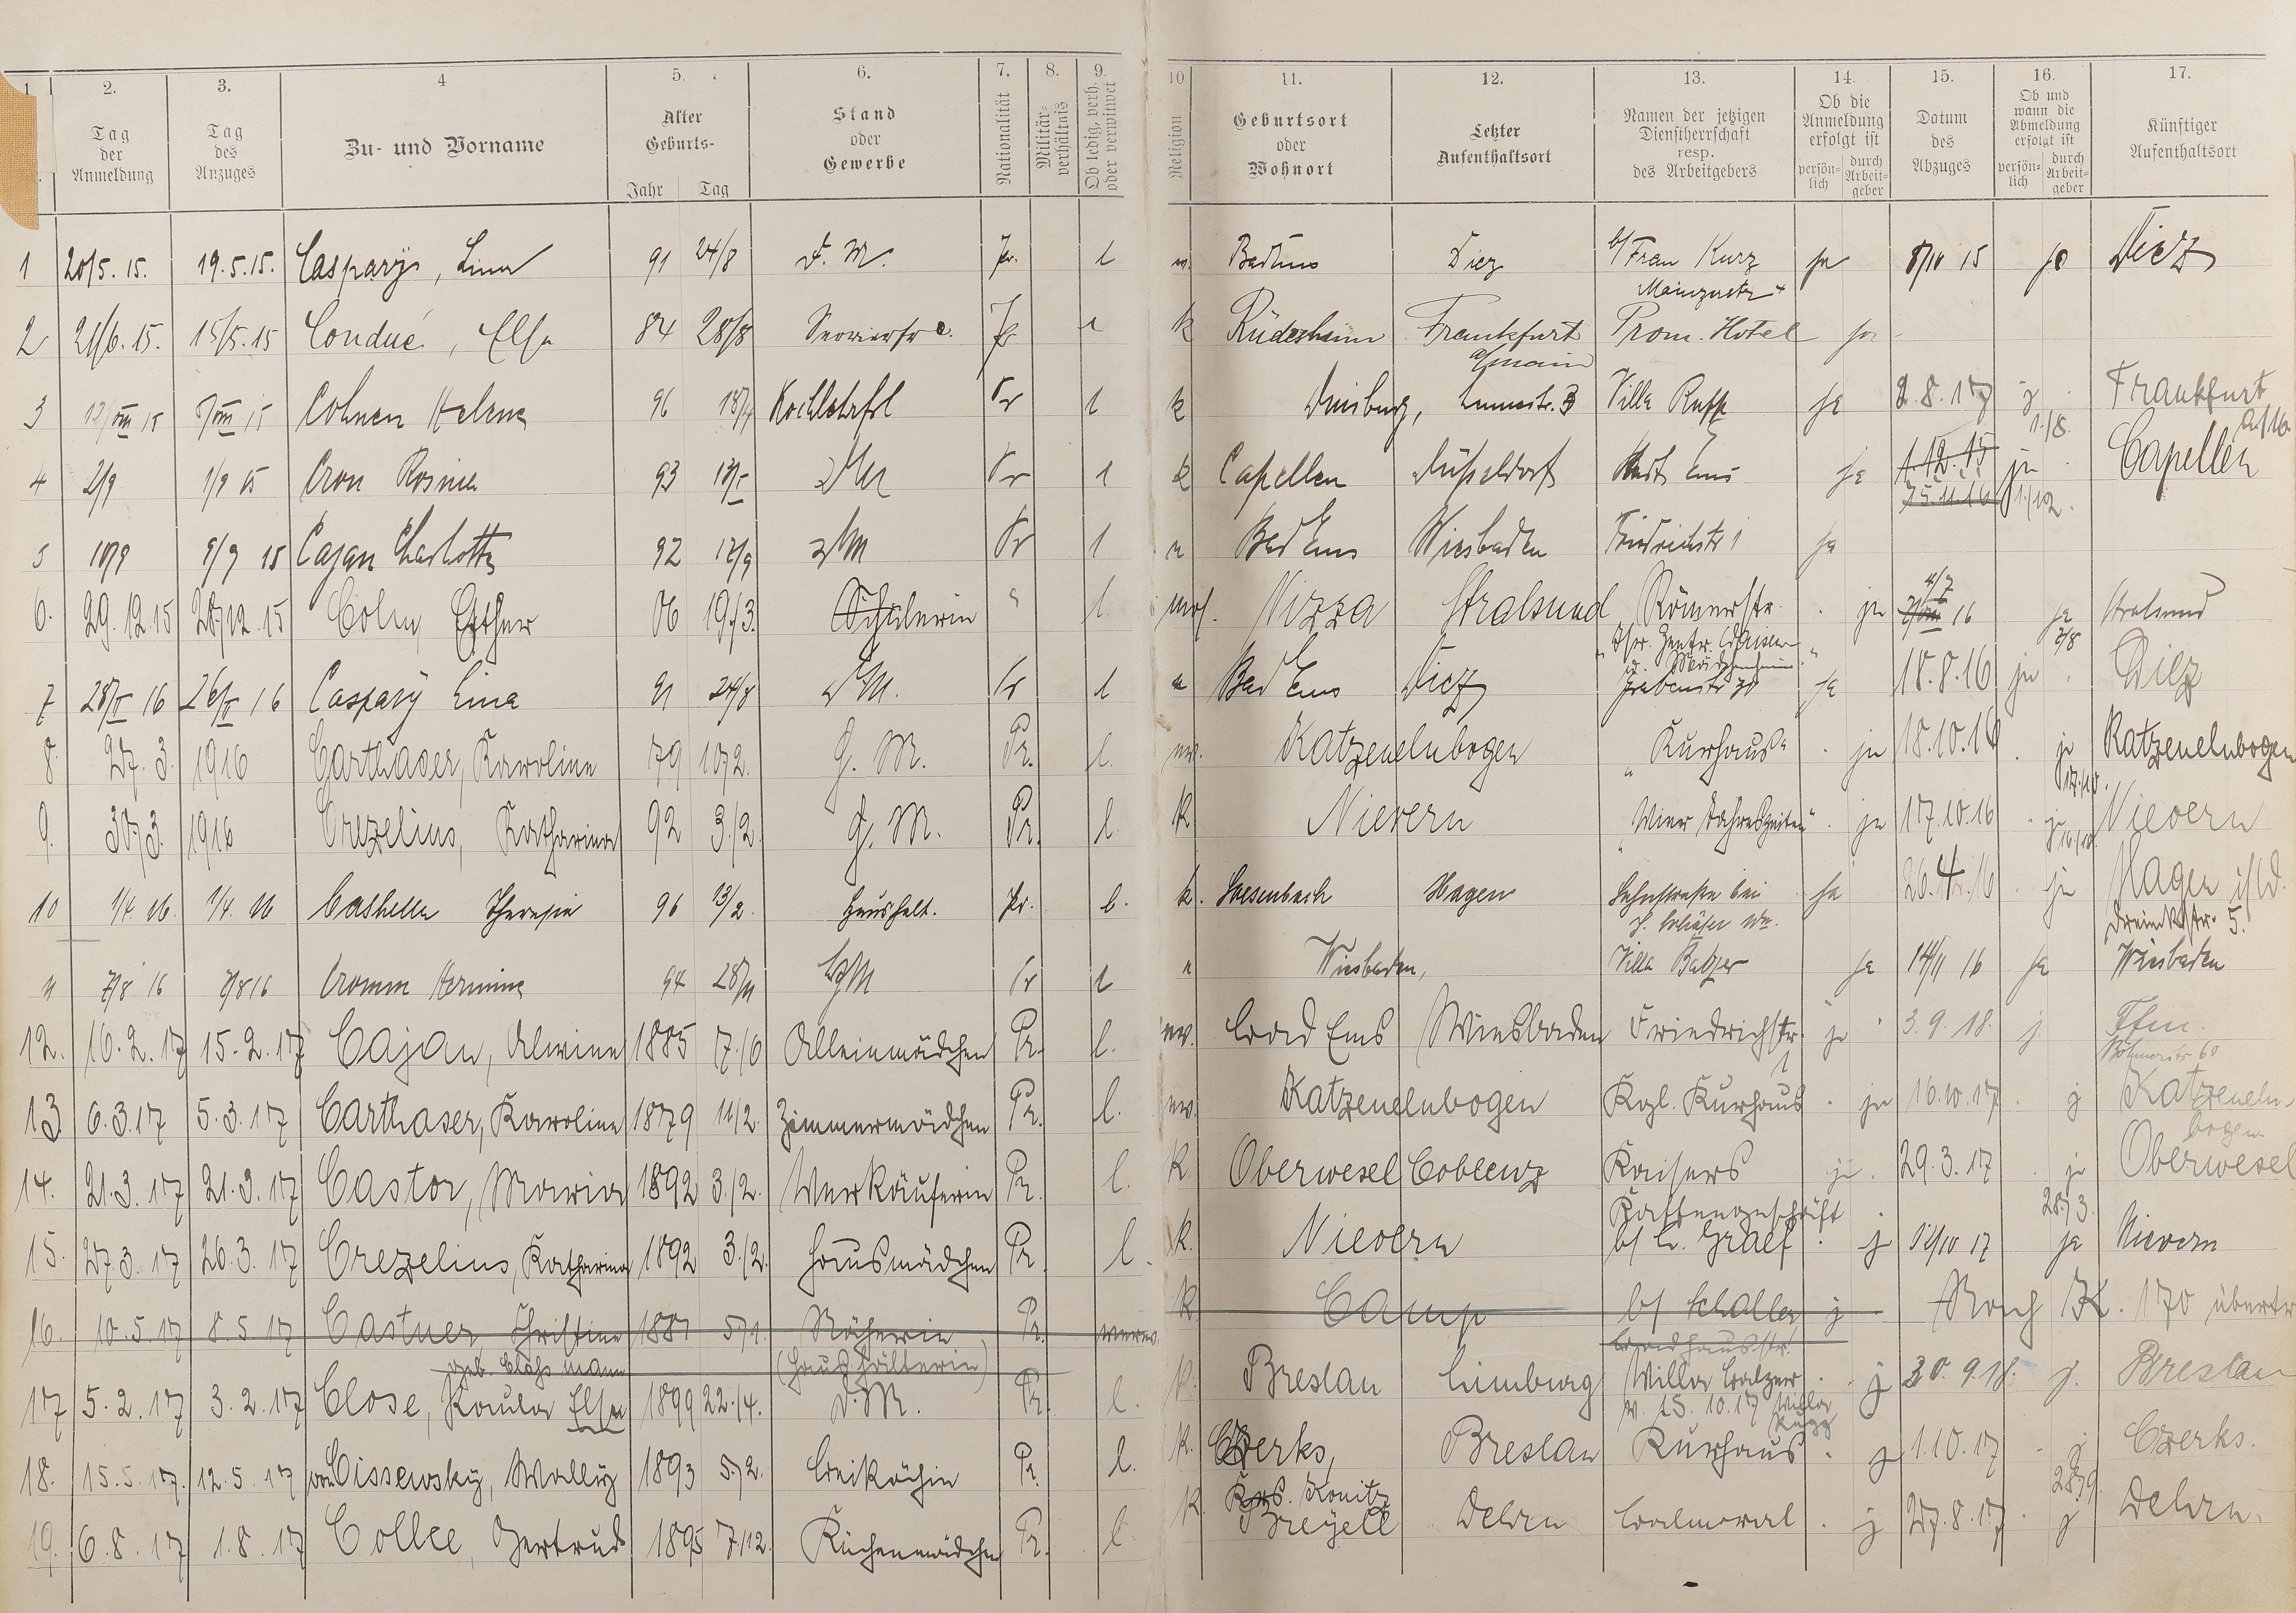 1 2. 3. 4 5. 6. 7. 8. 9. 10 11. 12. 13. 14. 15. 16. 17.
Tag der Anmeldung
Tag des Anzuges
Zu- und Vorname
Alter Geburts- Jahr Tag
Stand oder Gewerbe
Nationalität
Militär-verhältnis
Ob ledig, verh. oder verwitwet
Religion
Geburtsort oder Wohnort
Letzter Aufenthaltsort
Namen der jetzigen Dienstherrschaft resp. des Arbeitgebers
Ob die Anmeldung erfolgt ist persön-lich durch Arbeit-geber
Datum des Abzuges
Ob und wann die Abmeldung erfolgt ist persön-lich durch Arbeit-geber
Künftiger Aufenthaltsort
1 20/5. 15. 19. 5. 15. Caspary, Lina 91 24/8 D. M. Pr. l Bad Ems Diez b/ Frau Kurz ja 8/10 15 ja Diez
Mainzerstr
2 21/6. 15. 15/5. 15 Condué, Else 84 28/8 Pr l k Rüdesheim Frankfurt Prom. Hotel ja
a/main
3 12/VIII 15 Cohnen Helene 96 Kochlehrfrl Pr l k Duisburg, Villa Ruff ja 2. 8. 17 j Frankfurt
1./8. a/M.
4 2/9 1/9 15 Cron Rosina 93 DM Pr l k Capellen Düsseldorf Stadt Ems ja 1. 12. 15 ja Capellen
25. 11. 16 1/12.
5 10/9 9/9 15 Cajan Charlotte 92 12/9 DM Pr l Bad Ems Wiesbaden Friedrichstr 1 ja
6. 29. 12. 15 28/12. 15 Cohn, Esther 06 19./3. Schülerin " l. mos. Nizza Stralsund Römerstr. ja 4/7 16 ja Stralsund
2/8
7 28/II 16 26/II 16 Caspary Lina 91 24/8 DM. Pr l Bad Ems Diez Grabenstr ja 18. 8. 16 ja Diez
8. 27. 3. 1916 Carthaser, Karoline 79 10/2. G. M. Pr. l. ev. Katzenelnbogen "Kurhaus" ja 18. 10. 16 ja Katzenelnbogen
17./10.
9. 30/3. 1916 Crezelius, Katharina 92 3./2. G. M. Pr. l. K Nievern "Vier Jahreszeiten" ja 17. 10. 16 ja Nievern
10 1/4. 16. 1/4. 16 Theresia 96 13/2. Haushalt. Pr. k. Hagen ja 26. 4. 16 ja Hagen i/W.
11 7/8 16 7/8 16 Cromm Hermine 94 28/11 Pr l Wiesbaden, Villa Balzer ja 14/11 16 ja Wiesbaden
12. 16. 2. 17 15. 2. 17 Cajan, Alwine 1885 7./6 Alleinmädchen Pr. l. ev. Bad Ems Wiesbaden Friedrichstr. ja 3. 9. 18. j. Ffm.
1
13 6. 3. 17 5. 3. 17 Carthaser, Karoline 1879 11/2. Zimmermädchen Pr. l. ev. Katzenelnbogen Kgl. Kurhaus ja 16. 10. 17 j Katzeneln-
bogen.
14. 21. 3. 17 21. 3. 17 Castor, Maria 1892 3./2. Verkäuferin Pr. l. K Oberwesel Coblenz Kaisers ja. 29. 3. 17 ja Oberwesel
Kaffeegeschäft 28./3.
15. 27. 3. 17 26. 3. 17 Crezelius, Katharina 1892 3./2. Hausmädchen Pr. l. K. Nievern b/ C. Graef j 12/10 17 ja Nievern
16. 10. 5. 17 8. 5. 17 Castner Christine 1887 Näherin Pr. verw. K Camp b/ Schaller j Nach K. 170 übertr
geb. (Haushälterin)
17 5. 2. 17 3. 2. 17 Close, Paula Else 1899 22./4. D. M. Pr. l. K. Breslau Limburg Villa Balzer j 30. 9. 18. j. Breslau
v. 15. 10. 17 Villa
18. 15. 5. 17. 12. 5. 17 von Cissewsky, Wally 1893 5./2. Beiköchin Pr. l. K. Czerks, Breslau Kurhaus j 1. 10. 17 j Czerks.
Krs. Konitz 28./9.
19. 6. 8. 17 1. 8. 17 Collee, Gertrud 1895 7./12. Küchenmädchen Pr. l. K. Breyell Dehrn Balmoral j 27. 8. 17 j Dehrn.